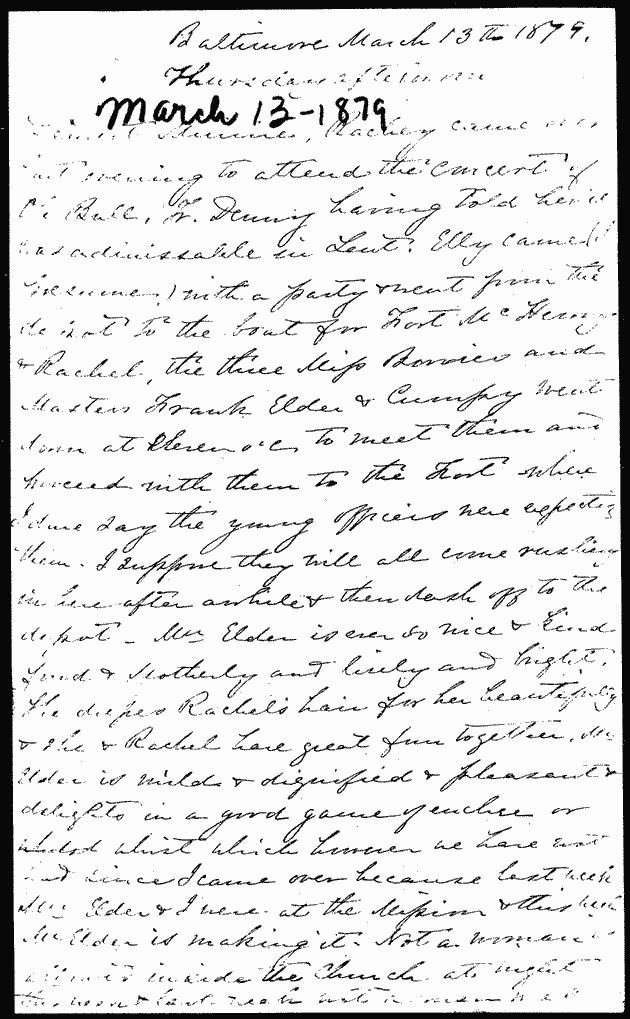 Baltimore March 13th 1879.
Thursday afternoon
March 13-1879
Dearest Minnie, Rachey came over
last evening to attend the concert of
Ole Bull, Fr. Denny having told her it
was admissable in Lent. Elly came (I
presume) with a party & went from the
depot to the boat for Fort McHenry
& Rachel, the three Miss Bowies and
Masters Frank Elder & went
down at Eleven o'c to meet them and
proceed with them to the Fort where
I dare say the young officers were expecting
them. I suppose they will all come rushing
in here after awhile & then dash off to the
depot - Mrs Elder is ever so nice & kind
fond & Motherly and lively and bright.
She Rachel's hair for her beautifully
& she & Rachel have great fun together. Mr
Elder is mild & dignified & pleasant &
delights in a good game of euchre or
whist which however we have not
had since I came over because last week
Mrs Elder & I were at the Mission & this week
Mr Elder is making it. Not a woman is
allowed inside the Church at night
this week & last week not a man